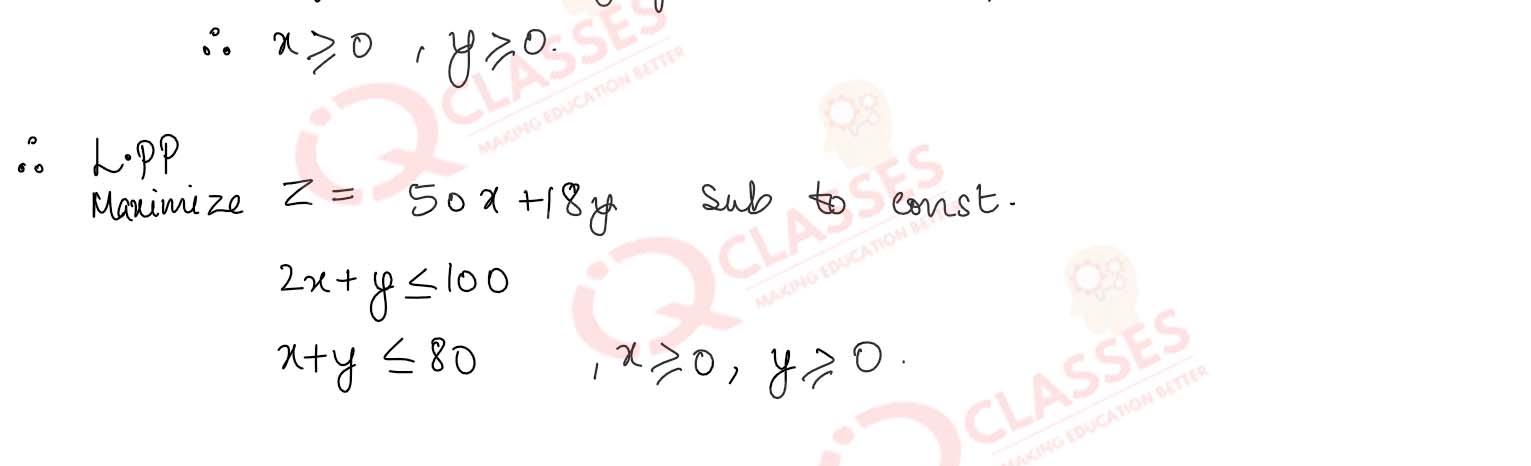 ∴ x ⩾ 0 , y ⩾ 0.
∴ L.PP
Maximize Z = 50x + 18y sub to const.
2x + y ≤ 100
x + y ≤ 80 , x ⩾ 0, y ⩾ 0.
QCLASSES
MAKING EDUCATION BETTER
QCLASSES
MAKING EDUCATION BETTER
CLASSES
MAKING EDUCATION BETTER